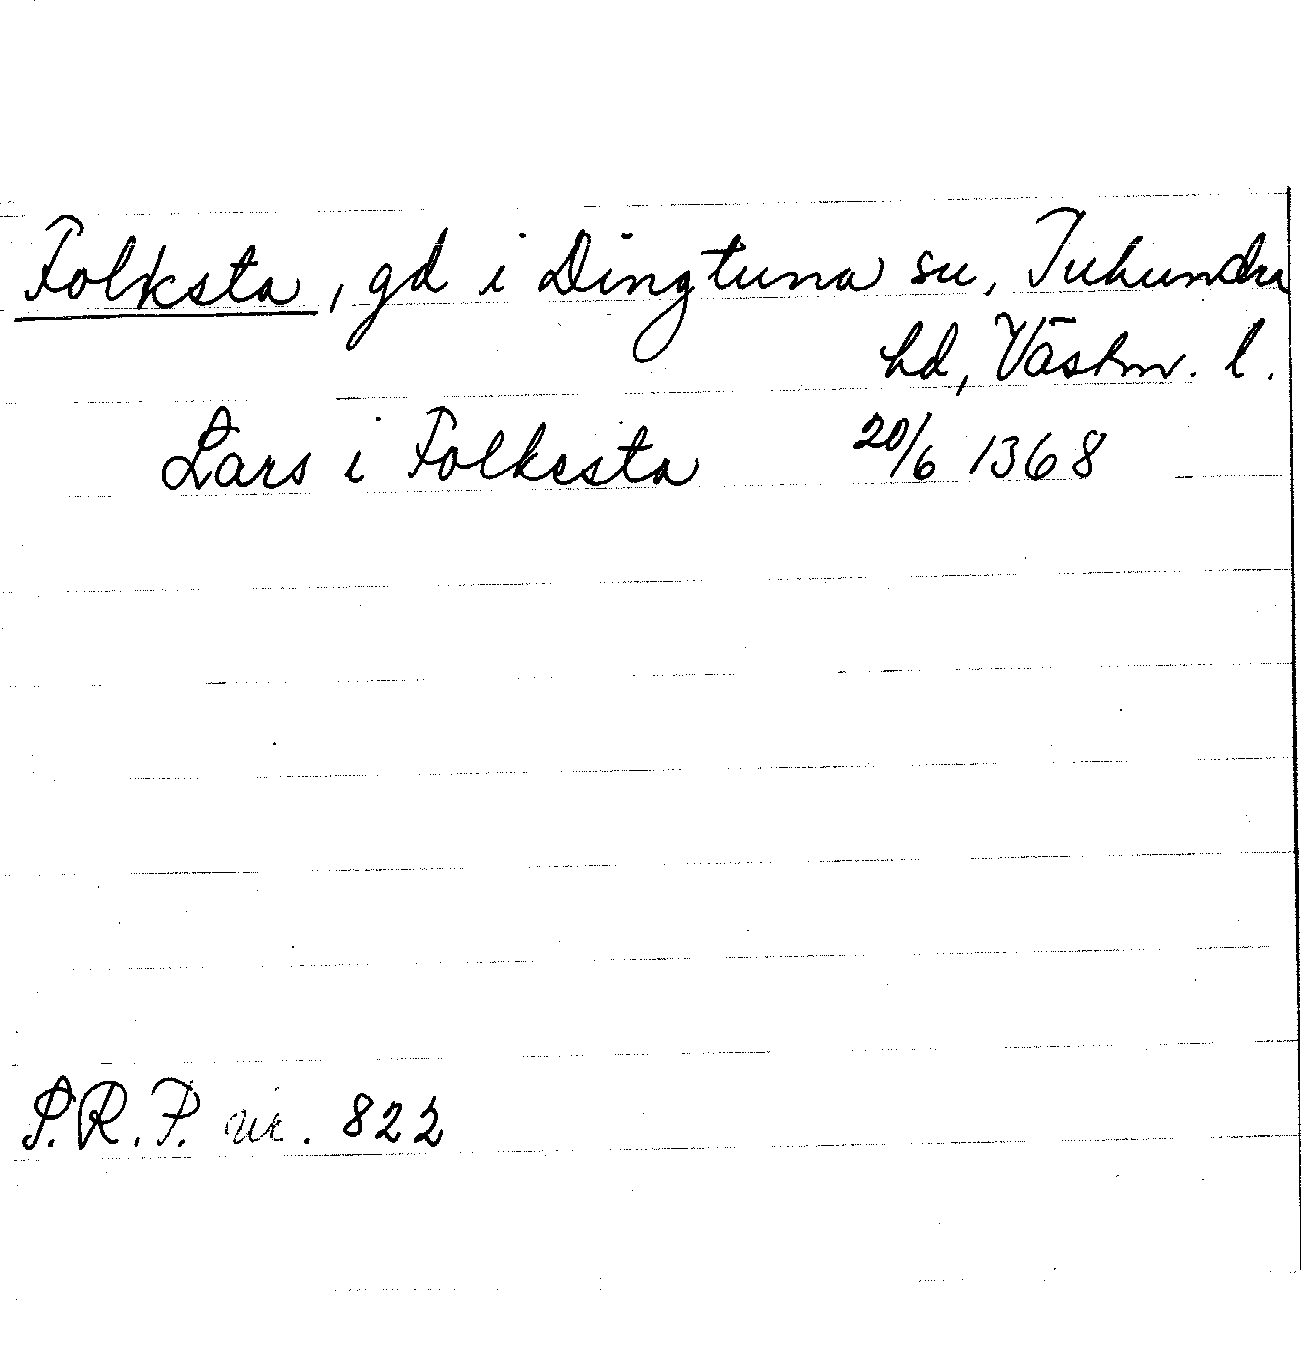 Folksta, gd i Dingtuna sn, Tuhundra
hd, Västm. l.
Lars i Folkesta 20/6 1368
S.R.P. nr. 822